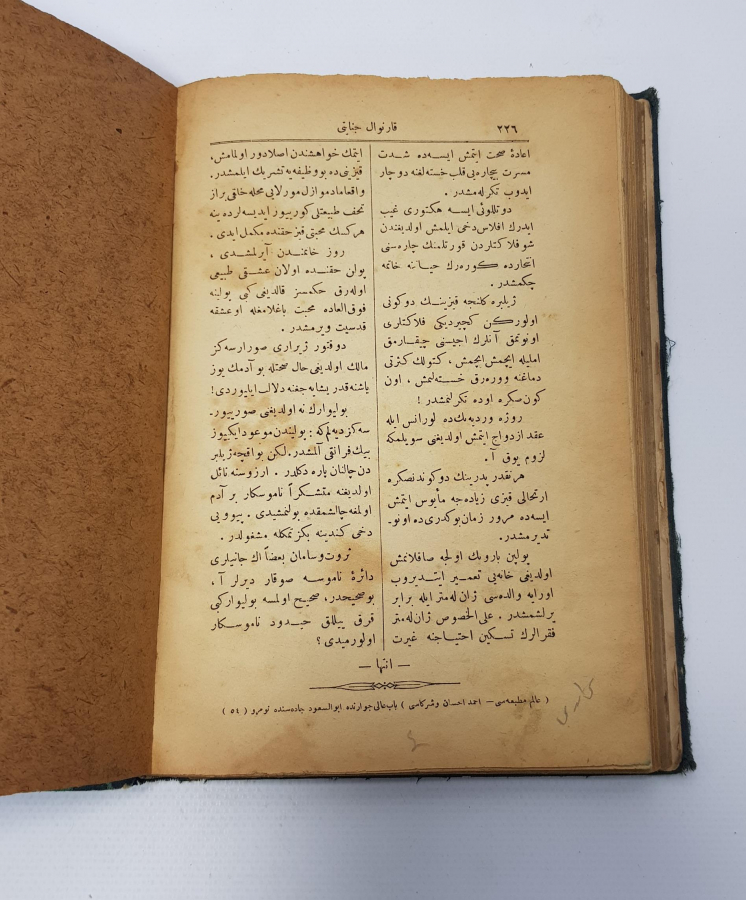 ٢٢٦
قارنوال جنایتی
اعادهٔ صحت ایتمش ایسه‌ده شدت
مسرت بیچاره‌یی قلب خسته‌لغنه دوچار
ایدوب تکرله‌مشدر .
دوتللوئی ایسه هکتوری غیب
ایدرك افلاس دخی ایلمش اولدیغندن
شو فلاکتلردن قورتلمنك چاره‌سنی
انتحارده کوره‌رك حیاتنه خاتمه
چکمشدر .
ژیلبره کلنجه قیزینك دوکونی
اولورکن کچیردیکی فلاکتلری
اونوتمق آنلرك اجیسنی چیقارمق
املیله ایچمش ایچمش ، کئولك کثرتی
دماغنه ووره‌رق خسته‌لنمش ، اون
کون صکره اوده تکرلنمشدر !
روژه وردیه‌یك‌ده لورانس ایله
عقد ازدواج ایتمش اولدیغنی سویلمکه
لزوم یوق آ .
هرنقدر پدرینك دوکوندنصکره
ارتحالی قیزی زیاده‌جه مأیوس ایتمش
ایسه‌ده مرور زمان بوکدری‌ده اونو-
تدیرمشدر .
پولین بارویك اولجه صاقلانمش
اولدیغی خانه‌یی تعمیر ایتدیروب
اورایه والده‌سی ژان له‌متر ایله برابر
یرلشمشدر . علی الخصوص ژان له‌متر
فقرالرك تسکین احتیاجنه غیرت
ایتمك خواهشندن اصلا دور اولمامش ،
قیزینی‌ده بووظیفه‌یه تشریك ایلمشدر .
واقعا مادموازل مورلایی محله خلقی براز
تحف طبیعتلی کورییور ایدیسه‌لرده ینه
هرکسك محبتی قیز حقنده مکمل ایدی .
روز خاتمندن آیرلمشدی ،
پولن حقنده اولان عشق طبیعی
اوله‌رق حکمسز قالدیغی کبی پولینه
فوق‌العاده محبت باغلامغله اوعشقه
قدسیت ویرمشدر .
دوقتور ژیراری صورارسه‌کز
مالك اولدیغی حال صحتله بوآدمك یوز
یاشنه‌قدر یشایه‌جغنه دلالت ایلیوردی !
بولیوارك نه اولدیغنی صورییور-
سه‌کز دیه‌لم‌که : پولیندن موعود ایکییوز
بیك فرانقی آلمشدر . لکن بواقچه ژیلبر
دن چالنان پاره دکلدر . آرزوسنه نائل
اولدیغنه متشکراً ناموسکار بر آدم
اولمغه چالشمقده بولنمشیدی . پیوویی
دخی کندینه بکزتمکله مشغولدر .
ثروت وسامان بعضاً اك جانیلری
دائرهٔ ناموسه صوقار دیرلر آ ،
بوصحیحدر ، صحیح اولمسه بولیوارکبی
قرق ییللق حیدود ناموسکار
اولورمیدی ؟
— انتها —
( عالم مطبعه‌سی — احمد احسان وشرکاسی ) باب‌عالی جوارنده ابوالسعود جاده‌سنده نومرو ( ٥٤ )